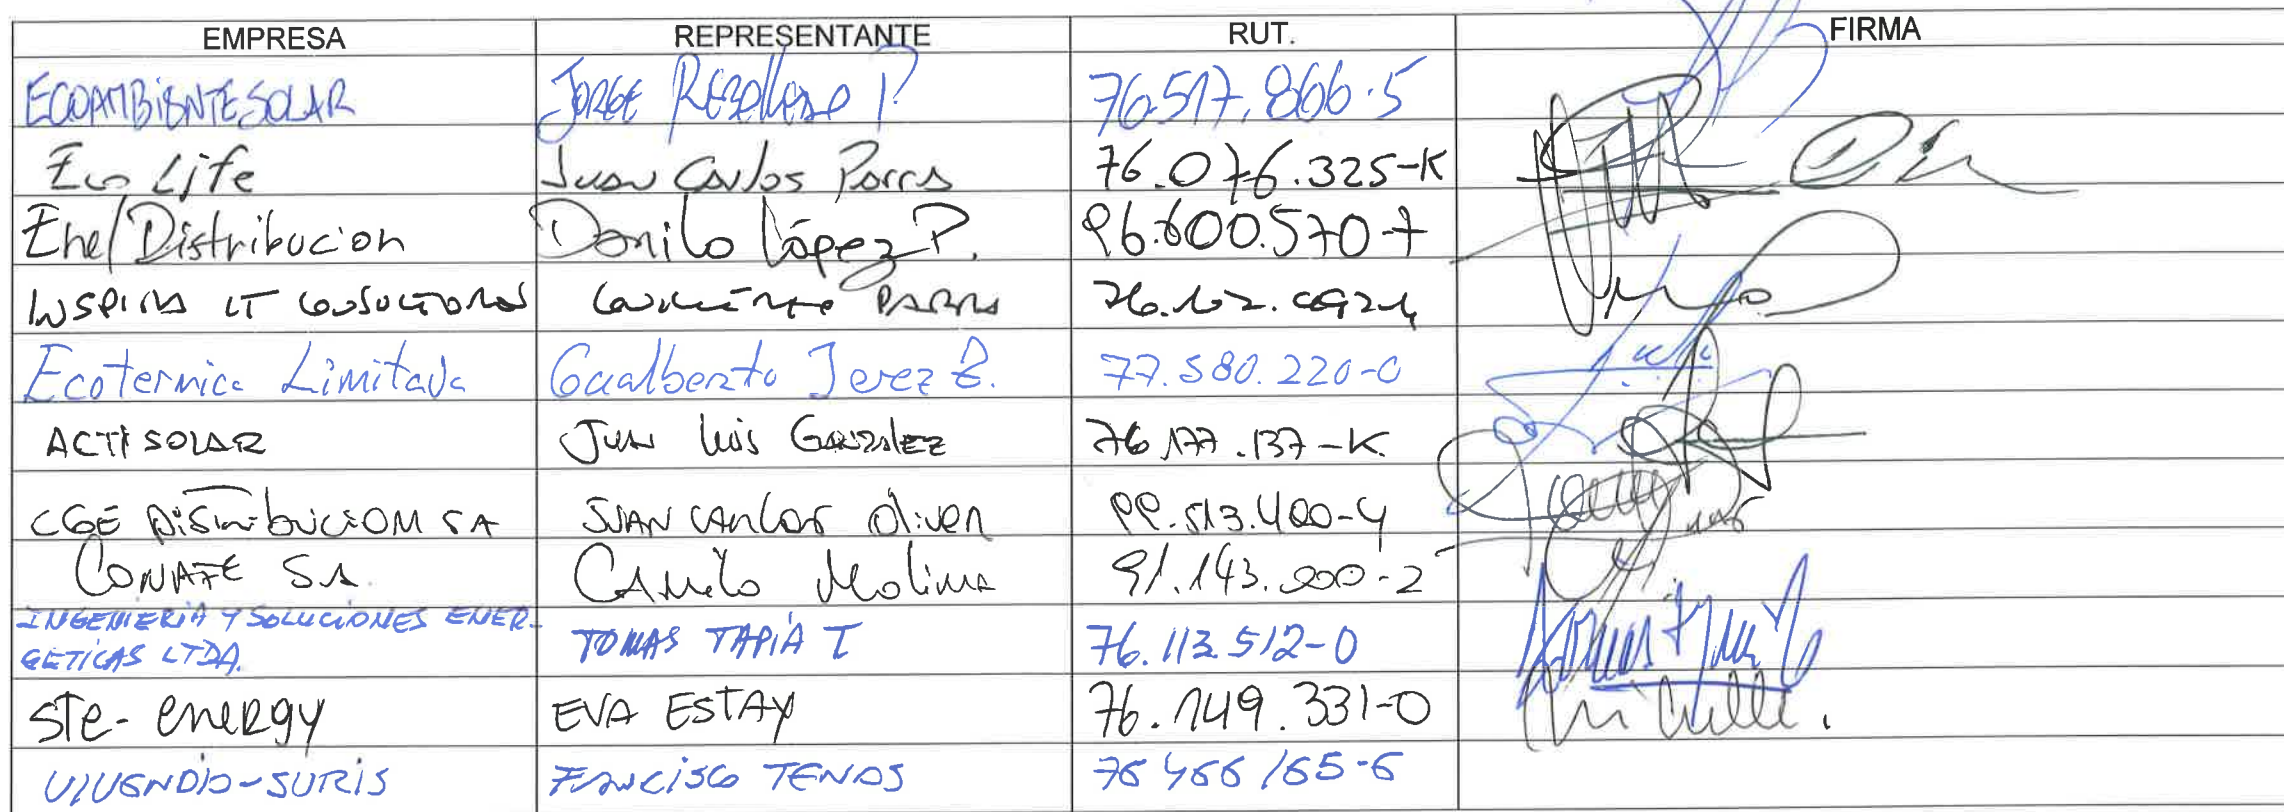 EMPRESA REPRESENTANTE RUT. FIRMA
ECOAMBIENTESOLAR JORGE P. 76.517.866-5
Eco Life Juan Carlos Parra 76.076.325-K
Enel Distribucion Danilo López P. 96.600.570-7
INSPIRA IT CONSULTORES PARRA
Ecotermica Limitada Gualberto Jerez B. 77.580.220-0
ACTISOLAR JUAN Luis GONZALEZ 76.177.137-K
CGE DISTRIBUCION SA JUAN CARLOS Oliver 99.513.400-4
CONAFE SA. CAMilo Molina 91.143.000-2
INGENIERIA Y SOLUCIONES ENER-
GETICAS LTDA. TOMAS TAPIA T 76.113.512-0
STE-energy EVA ESTAY 76.149.331-0
FRANCISCO 76 466 165-6